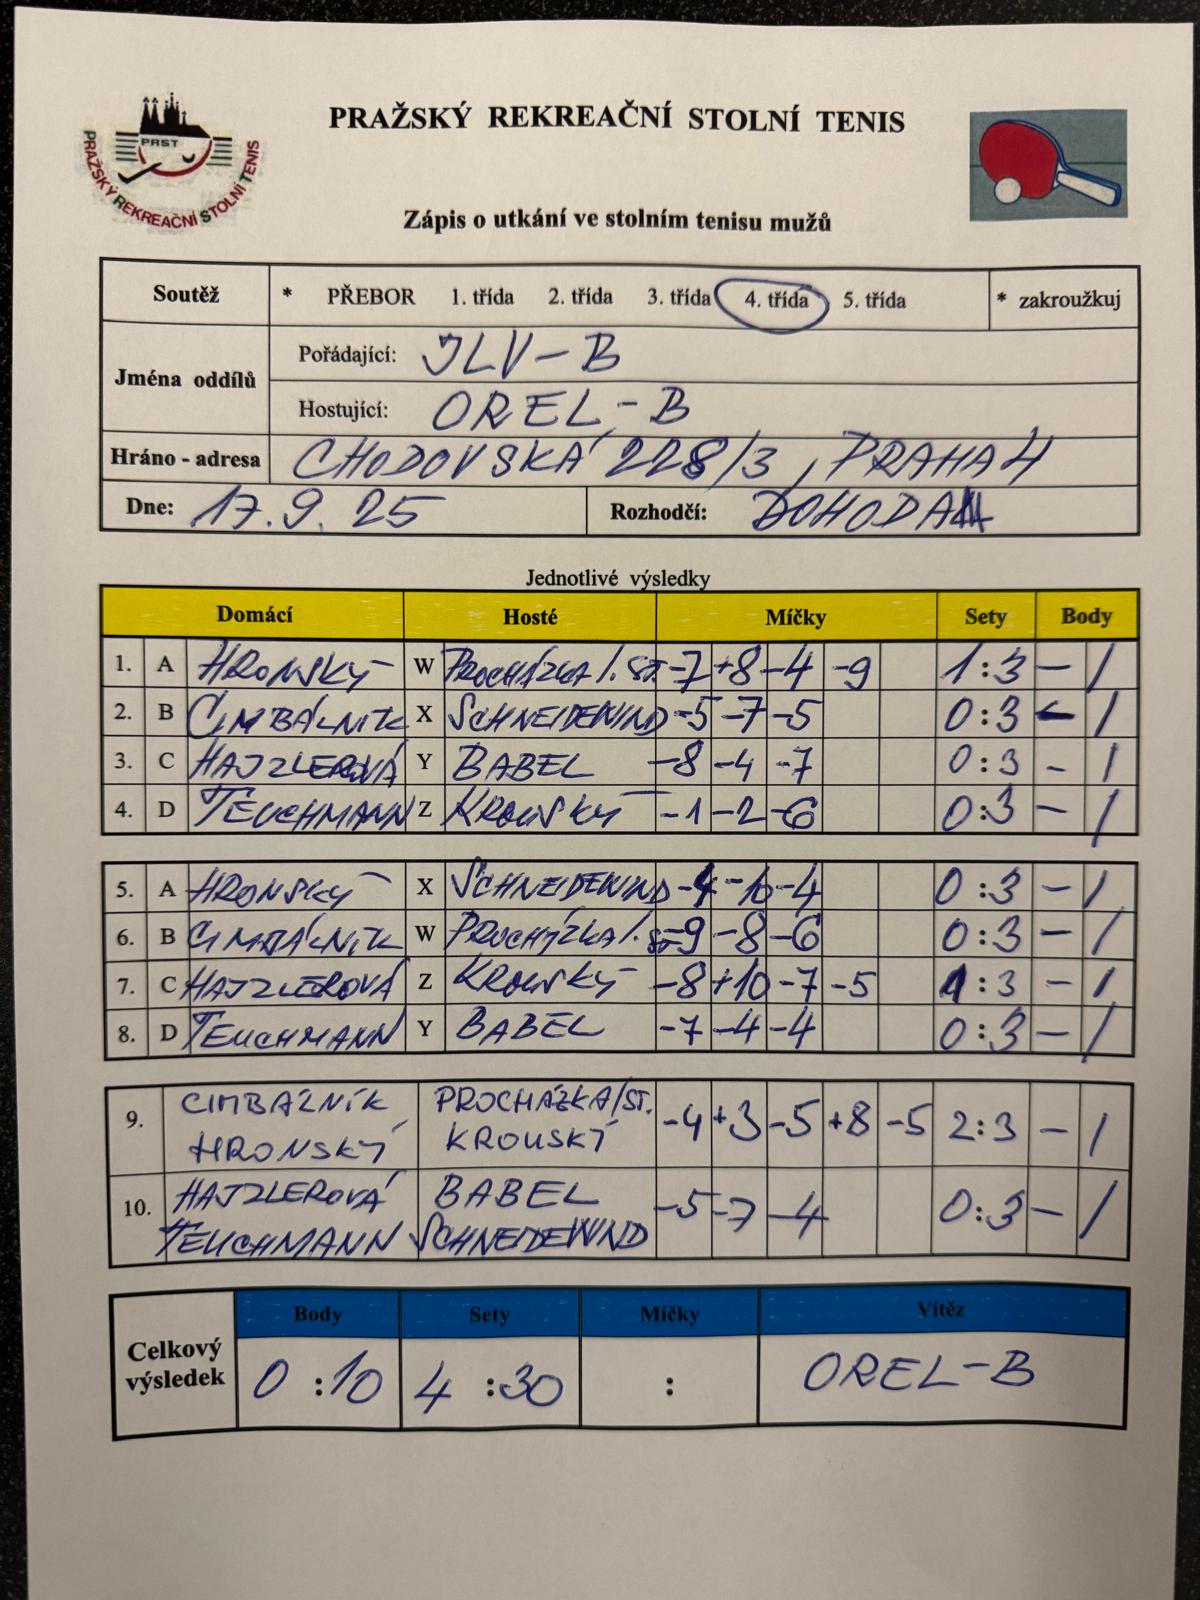 PRAŽSKÝ REKREAČNÍ STOLNÍ TENIS
PRST
PRAŽSKÝ REKREAČNÍ STOLNÍ TENIS
Zápis o utkání ve stolním tenisu mužů
Soutěž * PŘEBOR 1. třída 2. třída 3. třída 4. třída 5. třída * zakroužkuj
Jména oddílů
Pořádající: JLV-B
Hostující: OREL-B
Hráno - adresa CHODOVSKÁ 228/3, PRAHA 4
Dne: 17.9.25 Rozhodčí: DOHODA
Jednotlivé výsledky
Domácí Hosté Míčky Sety Body
1. A HRONSKÝ W PROCHÁZKA/.ST. -7 +8 -4 -9 1:3 - 1
2. B CIMBÁLNÍK X SCHNEIDEWIND -5 -7 -5 0:3 - 1
3. C HAJZLEROVÁ Y BABEL -8 -4 -7 0:3 - 1
4. D TEUCHMANN Z KROUSKÝ -1 -2 -6 0:3 - 1
5. A HRONSKÝ X SCHNEIDEWIND -4 -10 -4 0:3 - 1
6. B CIMBÁLNÍK W PROCHÁZKA/.ST. -9 -8 -6 0:3 - 1
7. C HAJZLEROVÁ Z KROUSKÝ -8 +10 -7 -5 1:3 - 1
8. D TEUCHMANN Y BABEL -7 -4 -4 0:3 - 1
9. CIMBÁLNÍK PROCHÁZKA/ST. -4 +3 -5 +8 -5 2:3 - 1
HRONSKÝ KROUSKÝ
10. HAJZLEROVÁ BABEL -5 -7 -4 0:3 - 1
TEUCHMANN SCHNEIDEWIND
Celkový výsledek
Body Sety Míčky Vítěz
0 :10 4 :30 : OREL-B